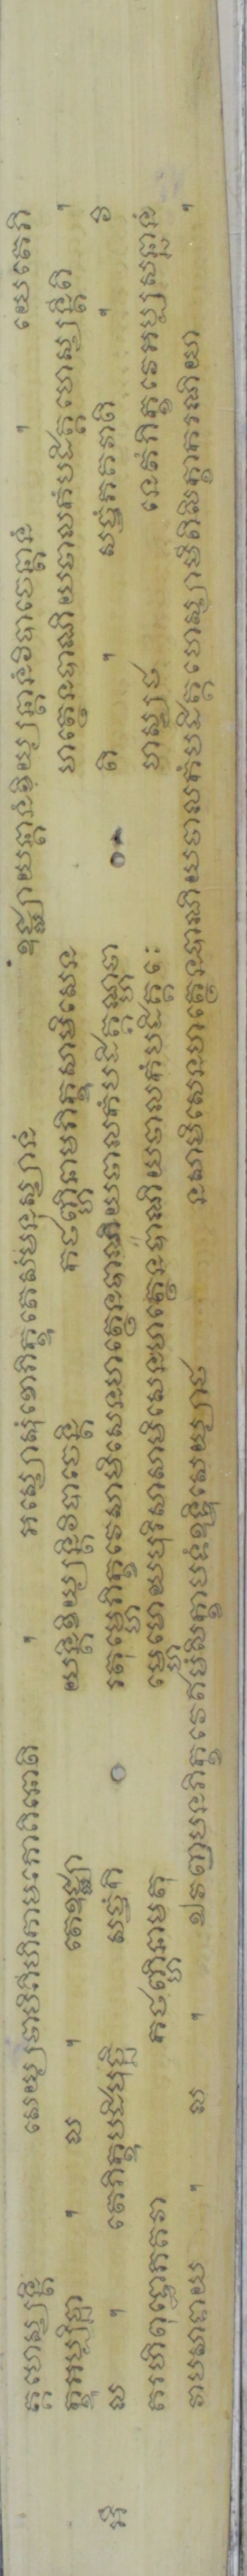 ត្តហេស្សន្តិ សេយ្យថាបិគីហិកាមភោគិនោតិ ។ អស្សោសុំខោភិក្ខុតេសំមនុស្សានំ ឧជ្ឈាយន្តានំខិយ្យន្តានំវិបាចេន្តានំ ។ យេតេភិ
ក្ខុអប្បិច្ឆា ។ ល ។ តេឧជ្ឈា យន្តិខិយ្យន្តិវិបាចេន្តិ កថញ្ហិនាមភិក្ខុសាមិសេន ហត្ថេនបានិយថាលកំបដិគ្គហេស្សន្តីតិ ។
ល ។ តេភិក្ខុបដិបុច្ឆិ សច្ចំកិ រតុម្ហេភិក្ខវេសាមិសេនហត្ថេនបានិយថាលកំបដិគ្គណ្ហថា តិ ។ សច្ចំភគវាតិ ។ វិ
គរហិពុទ្ធោភគវា កថញ្ហិនាមតុ ម្ហេមោឃបុរិសាសាមិសេនហត្ថេនបានិយថាលកំបដិគ្គ ហេស្សថ នេតំភិក្ខវេអប្បសន្នានំ
វាបសាទាយ ។ ល ។ ឯវញ្ចបនភិក្ខវេឥមំសិក្ខាបទំឧទ្ទិសេយ្យាថ នសាមិសេនហត្ថេនបានិយថាលកំបដិគ្គហេស្សាមីតិសិក្ខាករណិយា ។